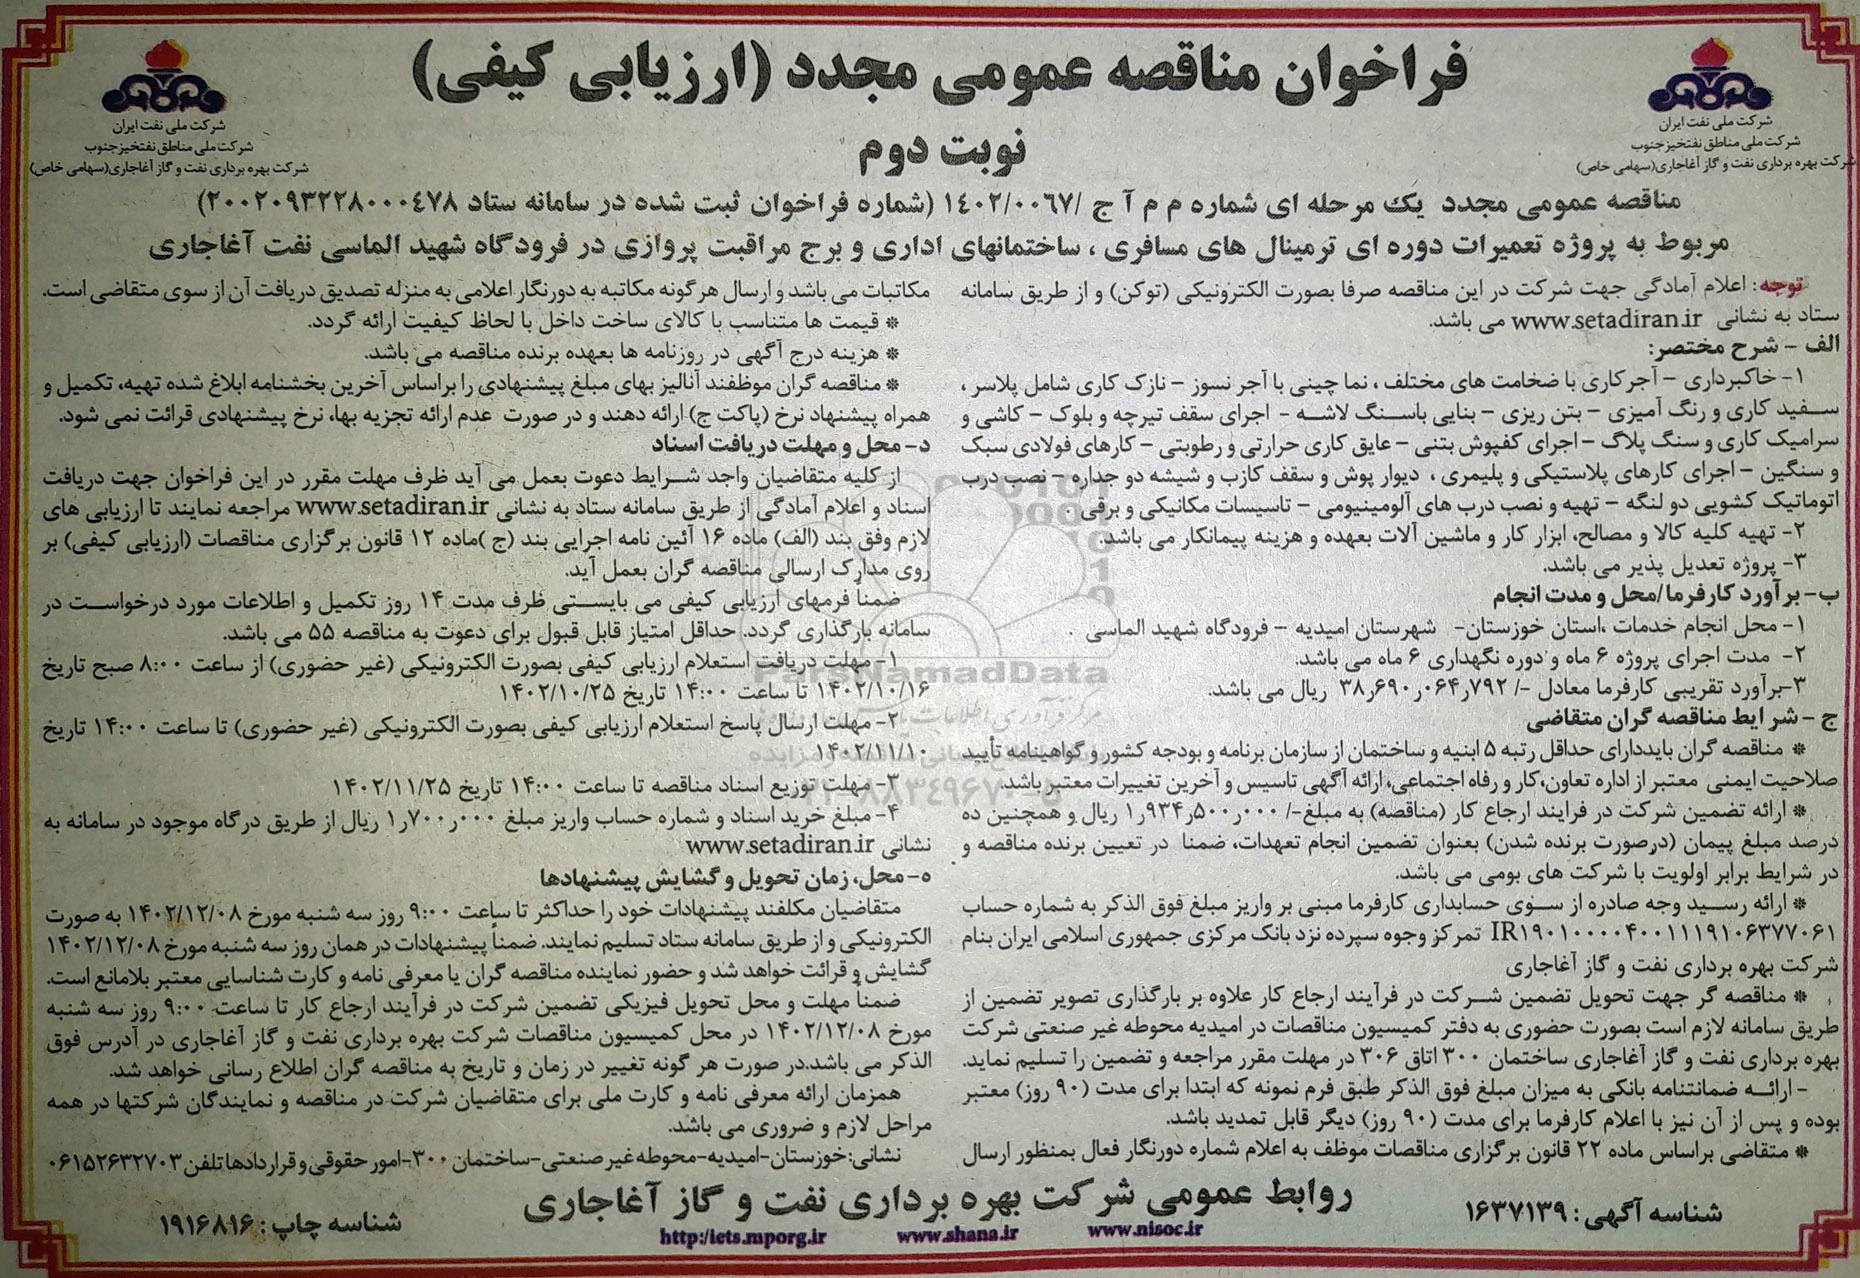 فراخوان مناقصه عمومی مجدد (ارزیابی کیفی)
نوبت دوم
شرکت ملی نفت ایران
شرکت ملی مناطق نفتخیز جنوب
شرکت بهره برداری نفت و گاز آغاجاری(سهامی خاص)
شرکت ملی نفت ایران
شرکت ملی مناطق نفتخیز جنوب
شرکت بهره برداری نفت و گاز آغاجاری(سهامی خاص)
مناقصه عمومی مجدد یک مرحله ای شماره م م آ ج /۱۴۰۲/۰۰۶۷ (شماره فراخوان ثبت شده در سامانه ستاد ۲۰۰۲۰۹۳۲۲۸۰۰۰۴۷۸)
مربوط به پروژه تعمیرات دوره ای ترمینال های مسافری ، ساختمانهای اداری و برج مراقبت پروازی در فرودگاه شهید الماسی نفت آغاجاری
توجه: اعلام آمادگی جهت شرکت در این مناقصه صرفا بصورت الکترونیکی (توکن) و از طریق سامانه
ستاد به نشانی www.setadiran.ir می باشد.
الف - شرح مختصر:
۱- خاکبرداری - آجرکاری با ضخامت های مختلف ، نما چینی با آجر نسوز - نازک کاری شامل پلاسر ،
سفید کاری و رنگ آمیزی - بتن ریزی - بنایی باسنگ لاشه - اجرای سقف تیرچه و بلوک - کاشی و
سرامیک کاری و سنگ پلاگ - اجرای کفپوش بتنی - عایق کاری حرارتی و رطوبتی - کارهای فولادی سبک
و سنگین - اجرای کارهای پلاستیکی و پلیمری ، دیوار پوش و سقف کازب و شیشه دو جداره - نصب درب
اتوماتیک کشویی دو لنگه - تهیه و نصب درب های آلومینیومی - تاسیسات مکانیکی و برقی
۲- تهیه کلیه کالا و مصالح، ابزار کار و ماشین آلات بعهده و هزینه پیمانکار می باشد.
۳- پروژه تعدیل پذیر می باشد.
ب- برآورد کارفرما/محل و مدت انجام
۱- محل انجام خدمات ،استان خوزستان- شهرستان امیدیه - فرودگاه شهید الماسی .
۲- مدت اجرای پروژه ۶ ماه و دوره نگهداری ۶ ماه می باشد.
۳-برآورد تقریبی کارفرما معادل -/ ۳۸٫۶۹۰٫۰۶۴٫۷۹۲ ریال می باشد.
ج - شرایط مناقصه گران متقاضی
* مناقصه گران بایددارای حداقل رتبه ۵ ابنیه و ساختمان از سازمان برنامه و بودجه کشور و گواهینامه تأیید
صلاحیت ایمنی معتبر از اداره تعاون،کار و رفاه اجتماعی، ارائه آگهی تاسیس و آخرین تغییرات معتبر باشد.
* ارائه تضمین شرکت در فرایند ارجاع کار (مناقصه) به مبلغ-/ ۱٫۹۳۴٫۵۰۰٫۰۰۰ ریال و همچنین ده
درصد مبلغ پیمان (درصورت برنده شدن) بعنوان تضمین انجام تعهدات، ضمنا در تعیین برنده مناقصه و
در شرایط برابر اولویت با شرکت های بومی می باشد.
* ارائه رسید وجه صادره از سوی حسابداری کارفرما مبنی بر واریز مبلغ فوق الذکر به شماره حساب
IR۱۹۰۱۰۰۰۰۴۰۰۱۱۱۹۱۰۶۳۷۷۰۶۱ تمرکز وجوه سپرده نزد بانک مرکزی جمهوری اسلامی ایران بنام
شرکت بهره برداری نفت و گاز آغاجاری
* مناقصه گر جهت تحویل تضمین شرکت در فرآیند ارجاع کار علاوه بر بارگذاری تصویر تضمین از
طریق سامانه لازم است بصورت حضوری به دفتر کمیسیون مناقصات در امیدیه محوطه غیر صنعتی شرکت
بهره برداری نفت و گاز آغاجاری ساختمان ۳۰۰ اتاق ۳۰۶ در مهلت مقرر مراجعه و تضمین را تسلیم نماید.
- ارائه ضمانتنامه بانکی به میزان مبلغ فوق الذکر طبق فرم نمونه که ابتدا برای مدت (۹۰ روز) معتبر
بوده و پس از آن نیز با اعلام کارفرما برای مدت (۹۰ روز) دیگر قابل تمدید باشد.
* متقاضی براساس ماده ۲۲ قانون برگزاری مناقصات موظف به اعلام شماره دورنگار فعال بمنظور ارسال
مکاتبات می باشد و ارسال هرگونه مکاتبه به دورنگار اعلامی به منزله تصدیق دریافت آن از سوی متقاضی است.
* قیمت ها متناسب با کالای ساخت داخل با لحاظ کیفیت ارائه گردد.
* هزینه درج آگهی در روزنامه ها بعهده برنده مناقصه می باشد.
* مناقصه گران موظفند آنالیز بهای مبلغ پیشنهادی را براساس آخرین بخشنامه ابلاغ شده تهیه، تکمیل و
همراه پیشنهاد نرخ (پاکت ج) ارائه دهند و در صورت عدم ارائه تجزیه بها، نرخ پیشنهادی قرائت نمی شود.
د- محل و مهلت دریافت اسناد
از کلیه متقاضیان واجد شرایط دعوت بعمل می آید ظرف مهلت مقرر در این فراخوان جهت دریافت
اسناد و اعلام آمادگی از طریق سامانه ستاد به نشانی www.setadiran.ir مراجعه نمایند تا ارزیابی های
لازم وفق بند (الف) ماده ۱۶ آئین نامه اجرایی بند (ج )ماده ۱۲ قانون برگزاری مناقصات (ارزیابی کیفی) بر
روی مدارک ارسالی مناقصه گران بعمل آید.
ضمناً فرمهای ارزیابی کیفی می بایستی ظرف مدت ۱۴ روز تکمیل و اطلاعات مورد درخواست در
سامانه بارگذاری گردد. حداقل امتیاز قابل قبول برای دعوت به مناقصه ۵۵ می باشد.
۱- مهلت دریافت استعلام ارزیابی کیفی بصورت الکترونیکی (غیر حضوری) از ساعت ۸:۰۰ صبح تاریخ
۱۴۰۲/۱۰/۱۶ تا ساعت ۱۴:۰۰ تاریخ ۱۴۰۲/۱۰/۲۵
۲- مهلت ارسال پاسخ استعلام ارزیابی کیفی بصورت الکترونیکی (غیر حضوری) تا ساعت ۱۴:۰۰ تاریخ
۱۴۰۲/۱۱/۱۰
۳- مهلت توزیع اسناد مناقصه تا ساعت ۱۴:۰۰ تاریخ ۱۴۰۲/۱۱/۲۵
۴- مبلغ خرید اسناد و شماره حساب واریز مبلغ ۱٫۷۰۰٫۰۰۰ ریال از طریق درگاه موجود در سامانه به
نشانی www.setadiran.ir
ه- محل، زمان تحویل و گشایش پیشنهادها
متقاضیان مکلفند پیشنهادات خود را حداکثر تا ساعت ۹:۰۰ روز سه شنبه مورخ ۱۴۰۲/۱۲/۰۸ به صورت
الکترونیکی و از طریق سامانه ستاد تسلیم نمایند. ضمناً پیشنهادات در همان روز سه شنبه مورخ ۱۴۰۲/۱۲/۰۸
گشایش و قرائت خواهد شد و حضور نماینده مناقصه گران یا معرفی نامه و کارت شناسایی معتبر بلامانع است.
ضمناً مهلت و محل تحویل فیزیکی تضمین شرکت در فرآیند ارجاع کار تا ساعت ۹:۰۰ روز سه شنبه
مورخ ۱۴۰۲/۱۲/۰۸ در محل کمیسیون مناقصات شرکت بهره برداری نفت و گاز آغاجاری در آدرس فوق
الذکر می باشد.در صورت هر گونه تغییر در زمان و تاریخ به مناقصه گران اطلاع رسانی خواهد شد.
همزمان ارائه معرفی نامه و کارت ملی برای متقاضیان شرکت در مناقصه و نمایندگان شرکتها در همه
مراحل لازم و ضروری می باشد.
نشانی: خوزستان-امیدیه-محوطه غیر صنعتی-ساختمان ۳۰۰-امور حقوقی و قراردادها تلفن ۰۶۱۵۲۶۳۲۷۰۳
روابط عمومی شرکت بهره برداری نفت و گاز آغاجاری
شناسه آگهی : ۱۶۳۷۱۳۹
شناسه چاپ : ۱۹۱۶۸۱۶
www.nisoc.ir
www.shana.ir
http:/iets.mporg.ir
ParsNamadData